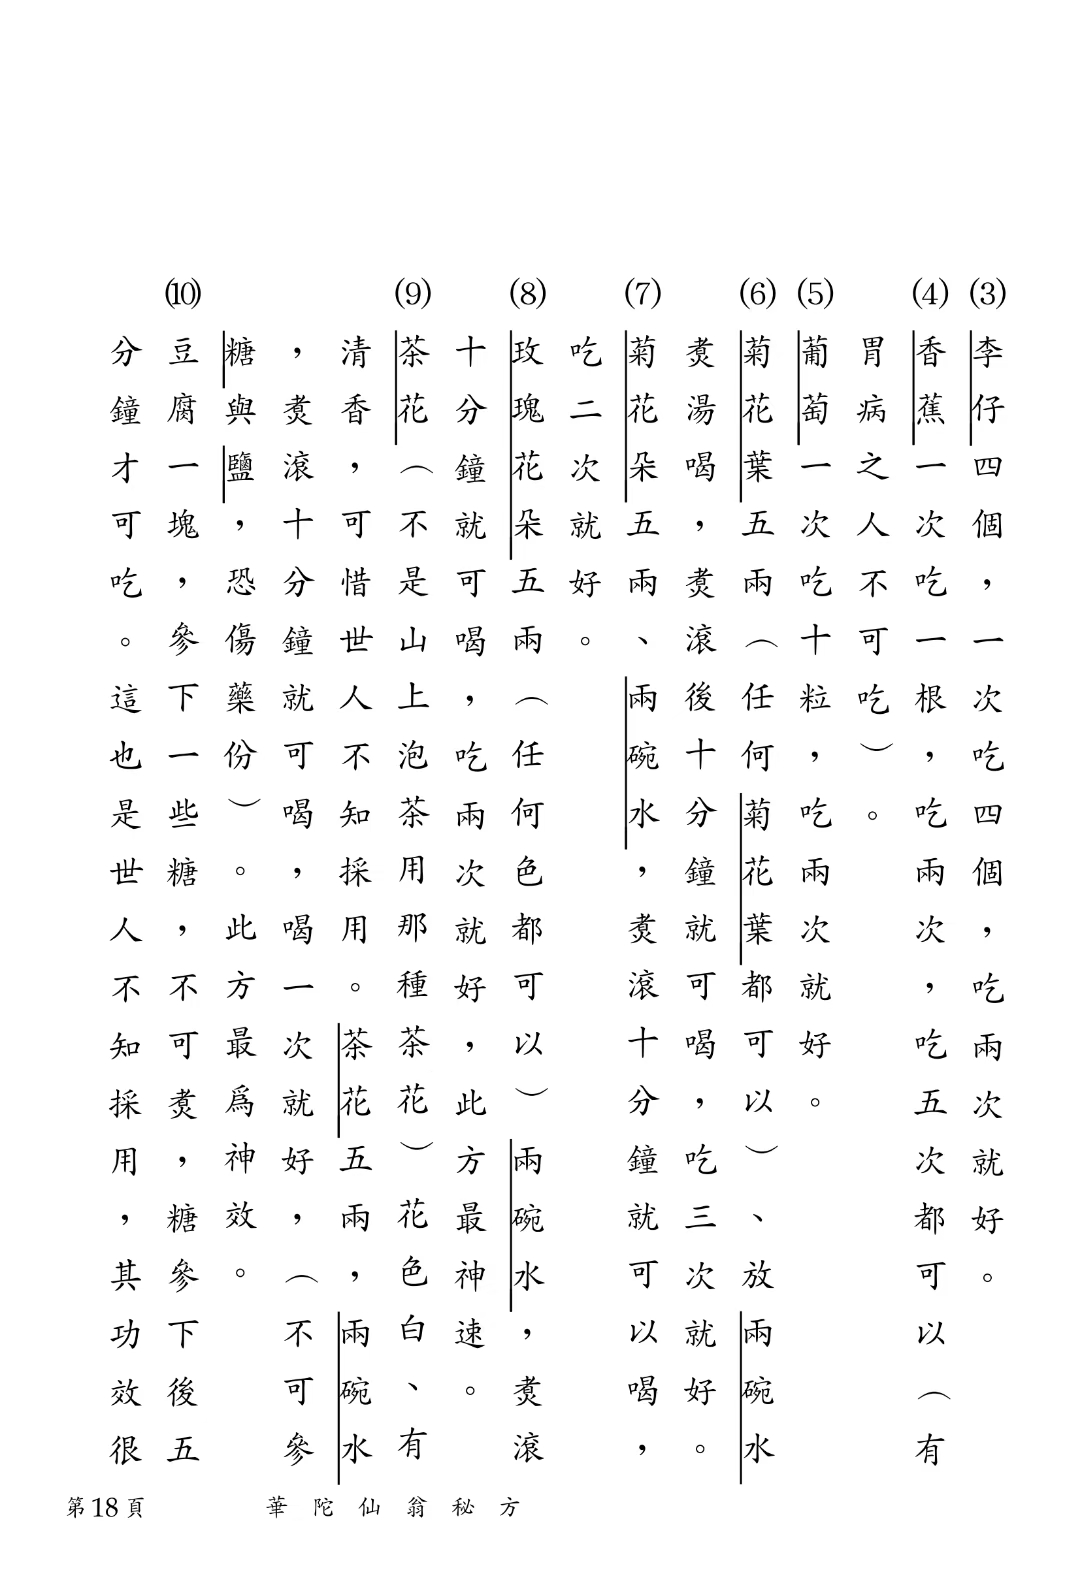 (3)李仔四個，一次吃四個，吃兩次就好。
(4)香蕉一次吃一根，吃兩次，吃五次都可以（有
胃病之人不可吃）。
(5)葡萄一次吃十粒，吃兩次就好。
(6)菊花葉五兩（任何菊花葉都可以）、放兩碗水
煑湯喝，煑滾後十分鐘就可喝，吃三次就好。
(7)菊花朵五兩、兩碗水，煑滾十分鐘就可以喝，
吃二次就好。
(8)玫瑰花朵五兩（任何色都可以）兩碗水，煑滾
十分鐘就可喝，吃兩次就好，此方最神速。
(9)茶花（不是山上泡茶用那種茶花）花色白、有
清香，可惜世人不知採用。茶花五兩，兩碗水
，煑滾十分鐘就可喝，喝一次就好，（不可參
糖與鹽，恐傷藥份）。此方最爲神效。
(10)豆腐一塊，參下一些糖，不可煑，糖參下後五
分鐘才可吃。這也是世人不知採用，其功效很
第18頁 華陀仙翁秘方